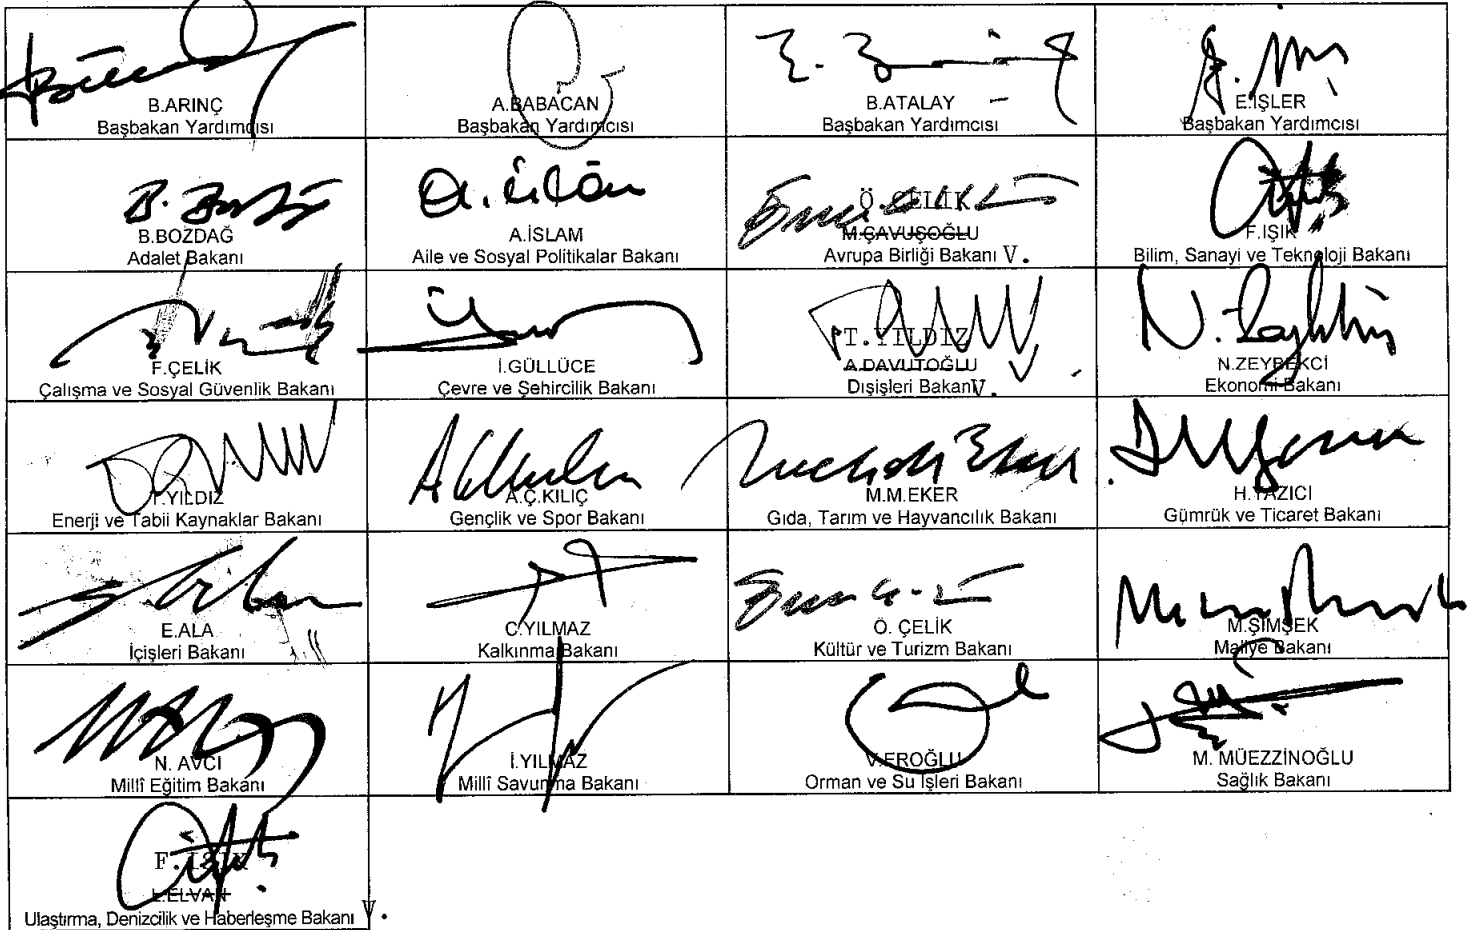 B.ARINÇ
Başbakan Yardımcısı
A.BABACAN
Başbakan Yardımcısı
B.ATALAY
Başbakan Yardımcısı
E.İŞLER
Başbakan Yardımcısı
B.BOZDAĞ
Adalet Bakanı
A.İSLAM
Aile ve Sosyal Politikalar Bakanı
Ö. ÇELİK
M.ÇAVUŞOĞLU
Avrupa Birliği Bakanı V.
F.IŞIK
Bilim, Sanayi ve Teknoloji Bakanı
F.ÇELİK
Çalışma ve Sosyal Güvenlik Bakanı
İ.GÜLLÜCE
Çevre ve Şehircilik Bakanı
T.YILDIZ
A.DAVUTOĞLU
Dışişleri Bakanı V.
N.ZEYBEKCİ
Ekonomi Bakanı
T.YILDIZ
Enerji ve Tabii Kaynaklar Bakanı
A.Ç.KILIÇ
Gençlik ve Spor Bakanı
M.M.EKER
Gıda, Tarım ve Hayvancılık Bakanı
H.YAZICI
Gümrük ve Ticaret Bakanı
E.ALA
İçişleri Bakanı
C.YILMAZ
Kalkınma Bakanı
Ö. ÇELİK
Kültür ve Turizm Bakanı
M.ŞİMŞEK
Maliye Bakanı
N. AVCI
Millî Eğitim Bakanı
İ.YILMAZ
Millî Savunma Bakanı
V.EROĞLU
Orman ve Su İşleri Bakanı
M. MÜEZZİNOĞLU
Sağlık Bakanı
F. IŞIK
L.ELVAN
Ulaştırma, Denizcilik ve Haberleşme Bakanı V.